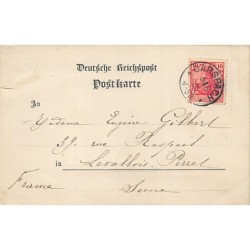 Deutsche Reichspost
Postkarte
An
Madame Eugène Gilbert
39 rue Raspail
in Levallois-Perret
France Seine